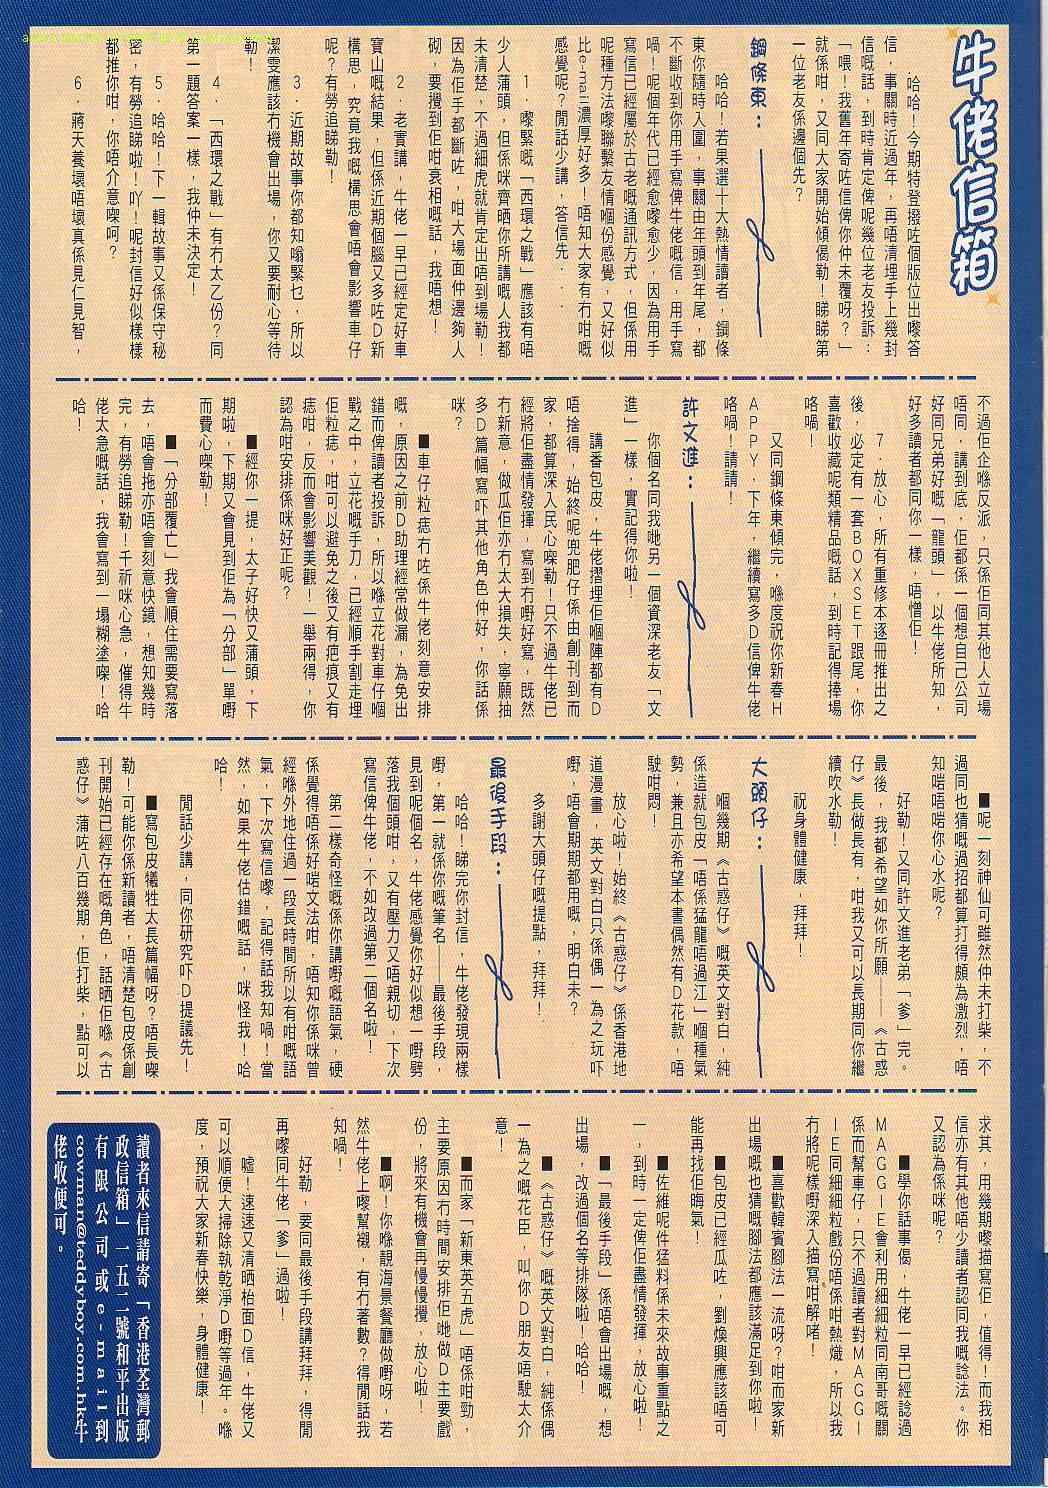 牛佬信箱
哈哈！今期特登撥咗個版位出嚟答
信，事關時近過年，再唔清理手上幾封
信嘅話，到時肯定俾呢幾位老友投訴：
「喂！我舊年寄咗信俾你仲未覆呀？」
就係咁，又同大家開始傾偈勒！睇睇第
一位老友係邊個先？
鋼條東：
哈哈！若果選十大熱情讀者，鋼條
東你隨時入圍，事關由年頭到年尾，都
不斷收到你用手寫俾牛佬嘅信，用手寫
喎！呢個年代已經愈嚟愈少，因為用手
寫信已經屬於古老嘅通訊方式，但係用
呢種方法嚟聯繫友情嗰份感覺，又好似
比e-mail濃厚好多！唔知大家有冇咁嘅
感覺呢？閒話少講，答信先．．．
1．嚟緊嘅「西環之戰」應該有唔
少人蒲頭，但係咪齊晒你所講嘅人我都
未清楚，不過細虎就肯定出唔到場勒！
因為佢手都斷咗，咁大場面仲邊夠人
砌，要攪到佢咁衰相嘅話，我唔想！
2．老實講，牛佬一早已經定好車
寶山嘅結果，但係近期個腦又多咗Ｄ新
構思，究竟我嘅構思會唔會影響車仔
呢？有勞追睇勒！
3．近期故事你都知嗡緊乜，所以
潔雯應該冇機會出場，你又要耐心等待
勒！
4．「西環之戰」有冇太乙份？同
第一題答案一樣，我仲未決定！
5．哈哈！下一輯故事又係保守秘
密，有勞追睇啦！吖！呢封信好似樣樣
都推你咁，你唔介意㗎呵？
6．蔣天養壞唔壞真係見仁見智，
不過佢企喺反派，只係佢同其他人立場
唔同，講到底，佢都係一個想自己公司
好同兄弟好嘅「龍頭」，以牛佬所知，
好多讀者都同你一樣，唔憎佢！
7．放心，所有重修本逐冊推出之
後，必定有一套ＢＯＸＳＥＴ跟尾，你
喜歡收藏呢類精品嘅話，到時記得捧場
咯喎！
又同鋼條東傾完，喺度祝你新春Ｈ
ＡＰＰＹ，下年，繼續寫多Ｄ信俾牛佬
咯喎！請請！
許文進：
你個名同我哋另一個資深老友「文
進」一樣，實記得你啦！
講番包皮，牛佬摺埋佢嗰陣都有Ｄ
唔捨得，始終呢兜肥仔係由創刊到而
家，都算深入民心㗎勒！只不過牛佬已
經將佢盡情發揮，寫到冇嘢好寫，既然
冇新意，做瓜佢亦冇太大損失，寧願抽
多Ｄ篇幅寫吓其他角色仲好，你話係
咪？
■車仔粒痣冇咗係牛佬刻意安排
嘅，原因之前Ｄ助理經常做漏，為免出
錯而俾讀者投訴，所以喺立花對車仔嗰
戰之中，立花嘅手刀，已經順手割走埋
佢粒痣，咁可以避免之後又有疤痕又有
痣咁，反而會影響美觀！一舉兩得，你
認為咁安排係咪好正呢？
■經你一提，太子好快又蒲頭，下
期啦，下期又會見到佢為「分部」單嘢
而費心㗎勒！
■「分部覆亡」我會順住需要寫落
去，唔會拖亦唔會刻意快鏡，想知幾時
完，有勞追睇勒！千祈咪心急，催得牛
佬太急嘅話，我會寫到一塌糊塗㗎！哈
哈！
■呢一刻神仙可雖然仲未打柴，不
過同也猜嘅過招都算打得頗為激烈，唔
知啱唔啱你心水呢？
好勒！又同許文進老弟「爹」完。
最後，我都希望如你所願——《古惑
仔》長做長有，咁我又可以長期同你繼
續吹水勒！
祝身體健康，拜拜！
大頭仔：
嗰幾期《古惑仔》嘅英文對白，純
係造就包皮「唔係猛龍唔過江」一嗰種氣
勢，兼且亦希望本書偶然有Ｄ花款，唔
駛咁悶！
放心啦！始終《古惑仔》係香港地
道漫畫，英文對白只係偶一為之玩吓
嘢，唔會期期都用嘅，明白未？
多謝大頭仔嘅提點，拜拜！
最後手段：
哈哈！睇完你封信，牛佬發現兩樣
嘢，第一就係你嘅筆名——最後手段，
見到呢個名，牛佬感覺你好似想一嘢劈
落我個頭咁，又有壓力又唔親切，下次
寫信俾牛佬，不如改過第二個名啦！
第二樣奇怪嘅係你講嘢嘅語氣，硬
係覺得唔係好啱文法咁，唔知你係咪曾
經喺外地住過一段長時間所以有咁嘅語
氣，下次寫信嚟，記得話我知喎！當
然，如果牛佬估錯嘅話，咪怪我！哈
哈！
閒話少講，同你研究吓Ｄ提議先！
■寫包皮犧牲太長篇幅呀？唔長㗎
勒！可能你係新讀者，唔清楚包皮係創
刊開始已經存在嘅角色，話晒佢喺《古
惑仔》蒲咗八百幾期，佢打柴，點可以
求其，用幾期嚟描寫佢，值得！而我相
信亦有其他唔少讀者認同我嘅諗法。你
又認為係咪呢？
■學你話事偈，牛佬一早已經諗過
ＭＡＧＧＩＥ會利用細細粒同南哥嘅關
係而幫車仔，只不過讀者對ＭＡＧＧＩ
ＩＥ同細細粒戲份唔係咁熱熾，所以我
冇將呢樣嘢深入描寫咁解啫！
■喜歡韓賓腳法一流呀？咁而家新
出場嘅也猜嘅腳法都應該滿足到你啦！
■包皮已經瓜咗，劉煥興應該唔可
能再找佢晦氣！
■佐維呢件猛料係未來故事重點之
一，到時一定俾佢盡情發揮，放心啦！
■「最後手段」係唔會出場嘅，想
出場，改過個名等排隊啦！哈哈！
■《古惑仔》嘅英文對白，純係偶
一為之嘅花臣，叫你Ｄ朋友唔駛太介
意！
■而家「新東英五虎」唔係咁勁，
主要原因冇時間安排佢哋做Ｄ主要戲
份，將來有機會再慢慢攪，放心啦！
■啊！你喺靚海景餐廳做嘢呀，若
然牛佬上嚟幫襯，有冇著數？得閒話我
知喎！
好勒，要同最後手段講拜拜，得閒
再嚟同牛佬「爹」過啦！
噓！速速又清晒枱面Ｄ信，牛佬又
可以順便大掃除執乾淨Ｄ嘢等過年。喺
度，預祝大家新春快樂，身體健康！
讀者來信請寄「香港荃灣郵
政信箱」一五二號和平出版
有限公司或e-mail到
cowman@teddyboy.com.hk牛
佬收便可。